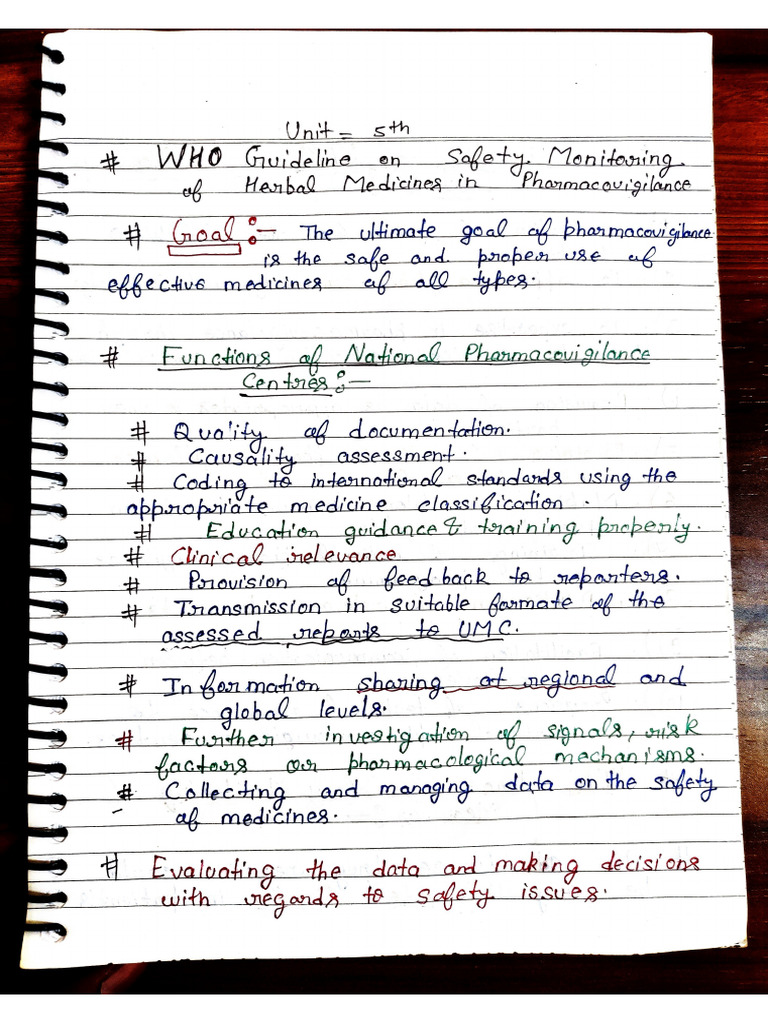 Unit = 5th
# WHO Guideline on Safety Monitoring
of Herbal Medicines in Pharmacovigilance
# Goal :- The ultimate goal of pharmacovigilance
is the safe and proper use of
effective medicines of all types.
# Functions of National Pharmacovigilance
Centres :-
# Qua'ity of documentation.
# Causality assessment.
# Coding to international standards using the
appropriate medicine classification.
# Education guidance & training properly.
# Clinical relevance
# Provision of feedback to reporters.
# Transmission in suitable formate of the
assessed reports to UMC.
# Information sharing at regional and
global levels.
# Further investigation of signals, risk
factors or pharmacological mechanisms.
# Collecting and managing data on the safety
of medicines.
# Evaluating the data and making decisions
with regards to safety issues.